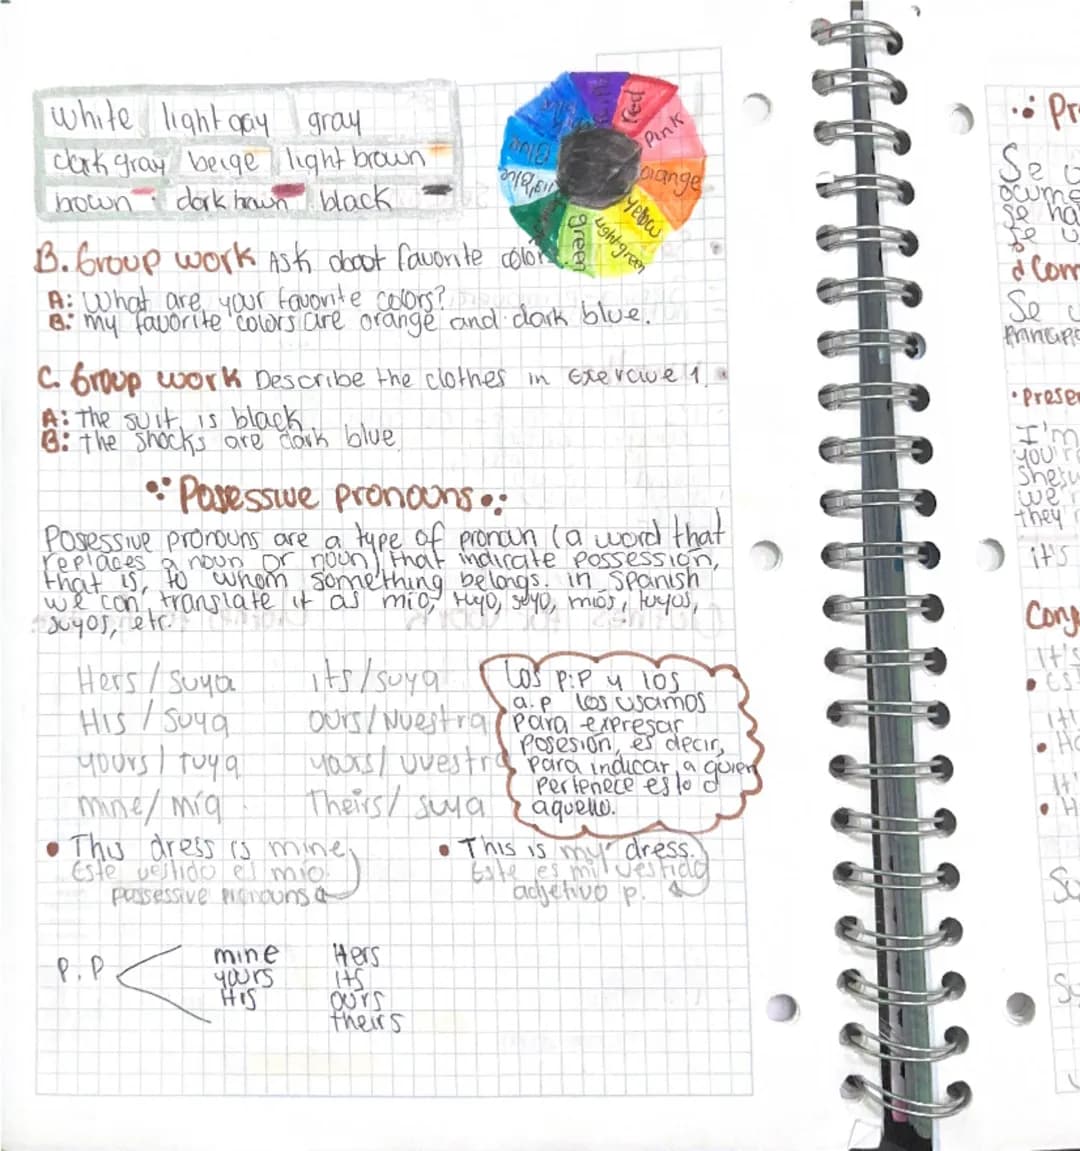 white light gay gray
dark gray beige light brown
bown dark brawn black
red
pink
orange
yellow
light green
green
Blue
B. Group work Ask about favorite color
A: What are your favorite colors?
B: my favorite colors are orange and dark blue.
C. Group work Describe the clothes in Exercive 1.
A: The suit is black
B: the shocks are dark blue
Posessive pronouns
Posessive pronouns are a type of pronoun (a word that
replaces a noun or noun) that indicate possession,
that is, to whom something belongs. in spanish
we can translate it as mio, tuyo, suyo, mios, tuyos,
suyos, etc.
Hers / suya its/suya
His / Suya ours/Nuestra
yours / tuya yours/ vuestra
mine/ mía Theirs/ suya
Los p.p y los
a.p los usamos
para expresar
posesión, es decir,
para indicar a quien
pertenece esto o
aquello.
• This dress is mine
Este vestido es mío
possessive pronouns
• This is my dress.
Este es mi vestido
adjetivo p.
P.P
mine Hers
yours its
His ours
theirs
Pr
Se u
Se
d Com
Se u
• Presen
I'm
you're
we
they
it's
Conj
It's